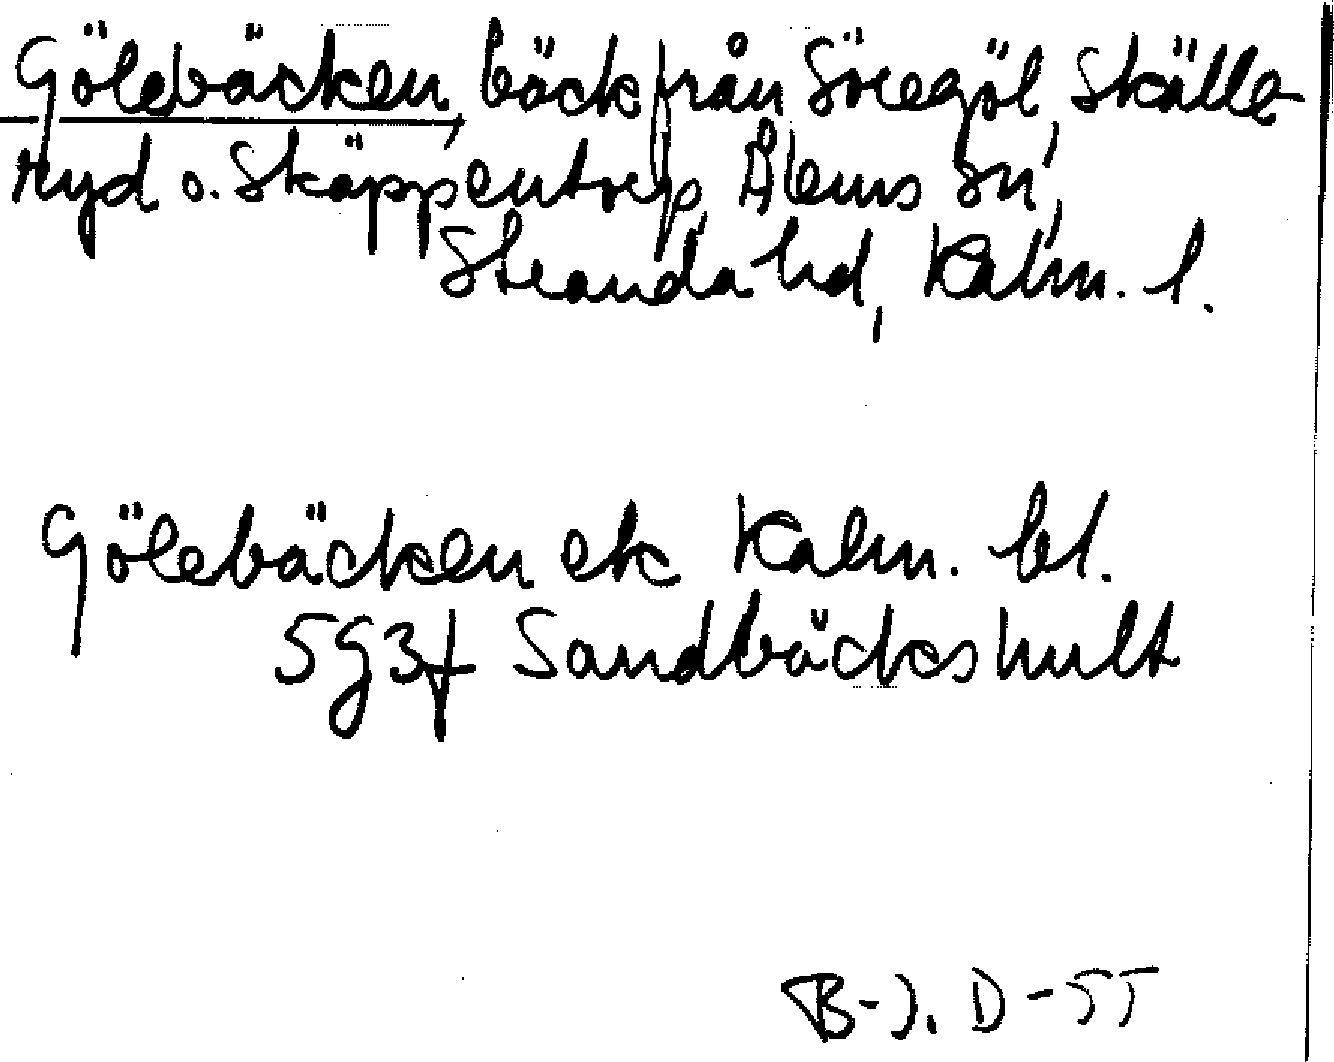 Gölebäcken, bäck från Söregöl, Skälle-
ryd o. Skäppentorp, Ålems sn,
Stranda hd, Kalm. l.
Gölebäcken ek Kalm. bl.
5G3f Sandbäckshult
B-J. D-55